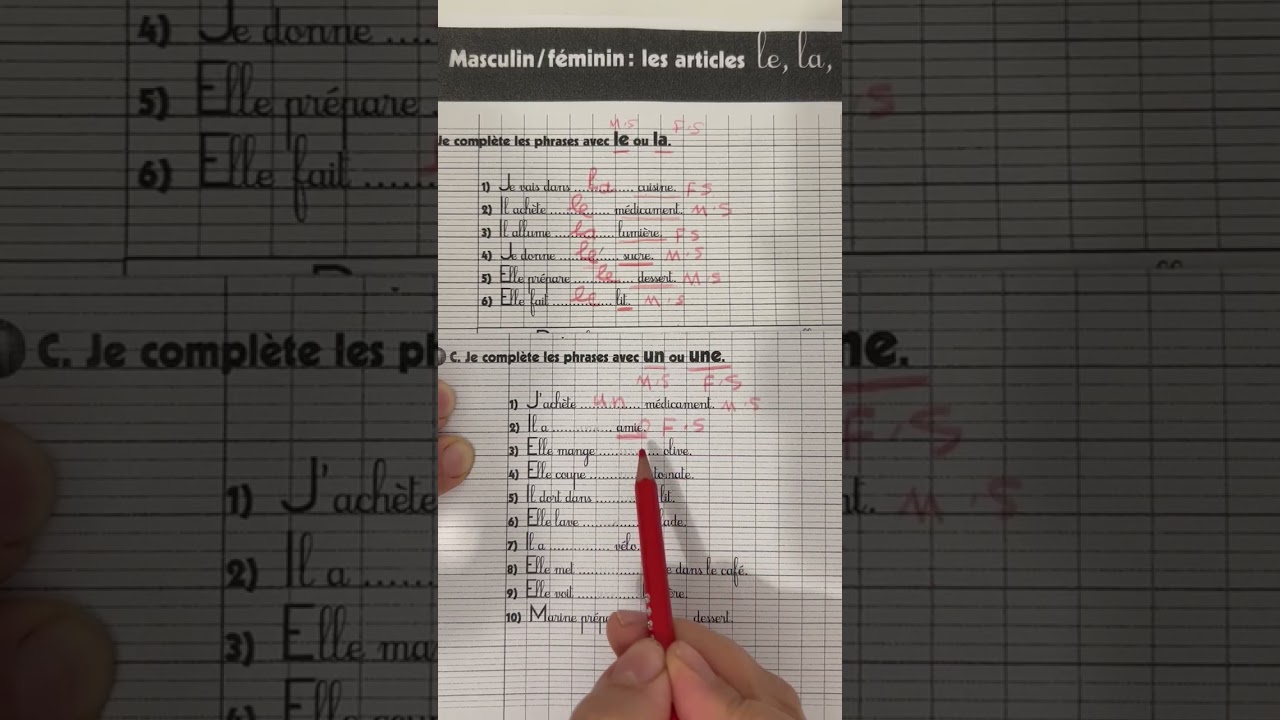 Masculin/féminin : les articles le, la,
M.S F.S
Je complète les phrases avec le ou la.
1) Je vais dans ....la.... cuisine. F S
2) Il achète ....le.... médicament. M.S
3) Il allume ....la.... lumière. F S
4) Je donne ....le.... sucre. M.S
5) Elle prépare ....le.... dessert. M S
6) Elle fait ....le.... lit. M.S
C. Je complète les phrases avec un ou une.
M.S F.S
1) J'achète ....un.... médicament. M.S
2) Il a .............. amie. F.S
3) Elle mange .............. olive.
4) Elle coupe .............. tomate.
5) Il dort dans .......... lit.
6) Elle lave ..............
7) Il a .............. vélo.
8) Elle met .............. dans le café.
9) Elle voit ..............
10) Marine dessert.